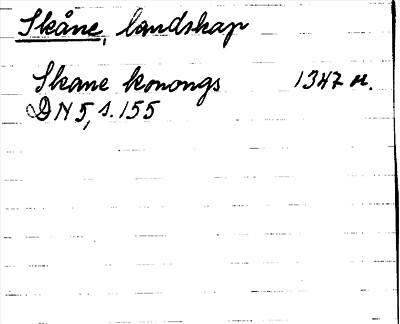 Skåne, landskap
Skane konongs 1347 or.
DN 5, s. 155